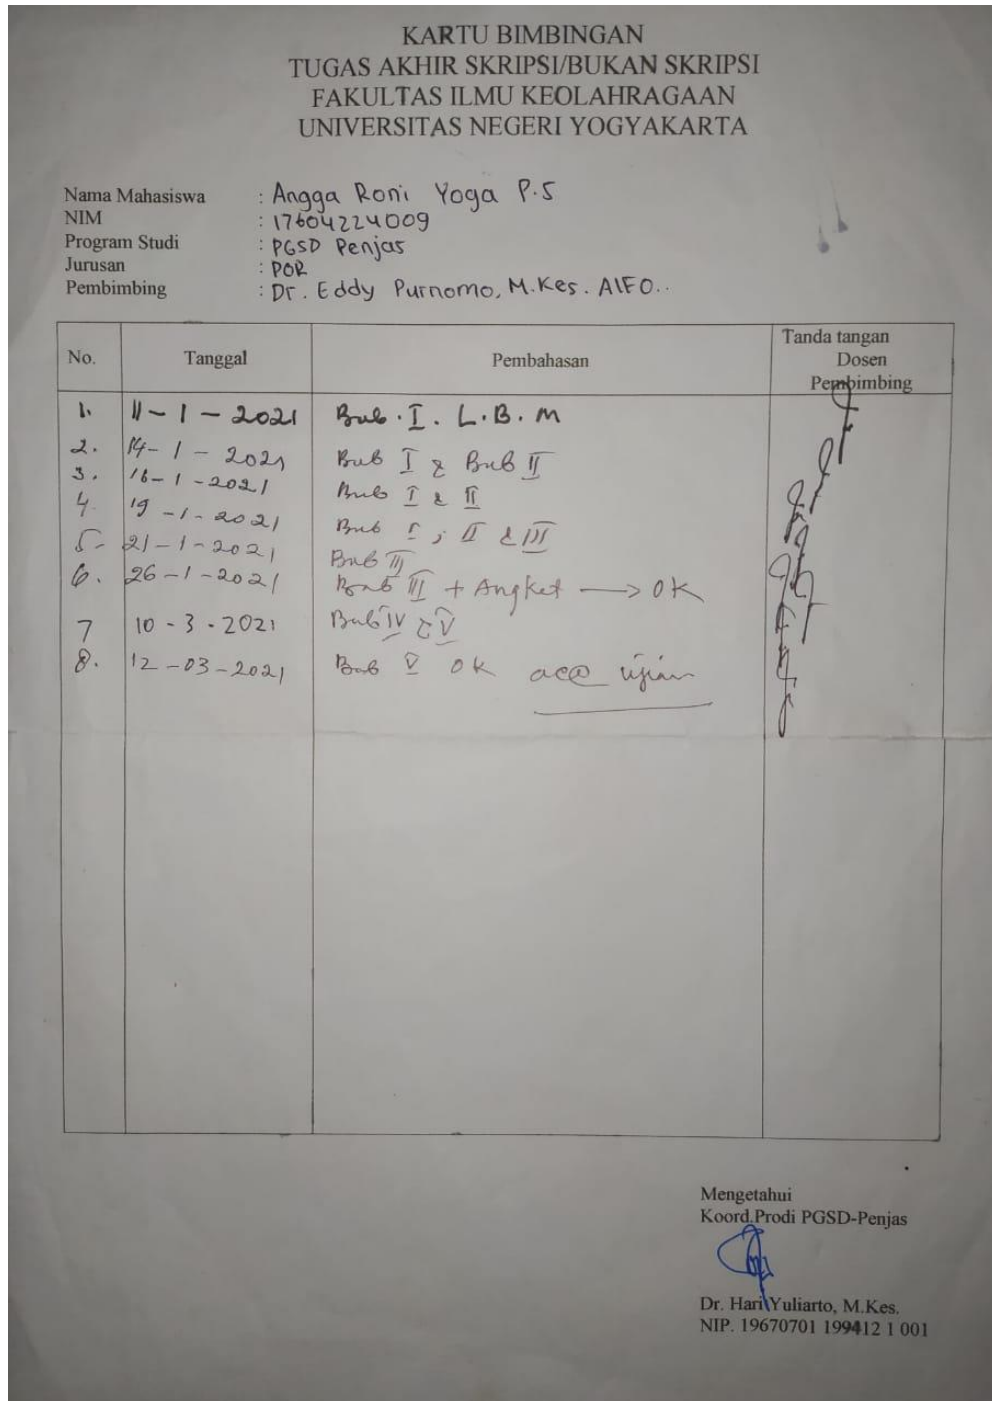 KARTU BIMBINGAN
TUGAS AKHIR SKRIPSI/BUKAN SKRIPSI
FAKULTAS ILMU KEOLAHRAGAAN
UNIVERSITAS NEGERI YOGYAKARTA
Nama Mahasiswa : Angga Roni Yoga P.S
NIM : 17604224009
Program Studi : PGSD Penjas
Jurusan : POR
Pembimbing : Dr. Eddy Purnomo, M.Kes. AIFO..
No. Tanggal Pembahasan Tanda tangan Dosen Pembimbing
1. 11-1-2021 Bab. I. L.B.M
2. 14-1-2021 Bab I & Bab II
3. 16-1-2021 Bab I & II
4. 19-1-2021 Bab I, II & III
5- 21-1-2021 Bab III
6. 26-1-2021 Bab III + Angket → OK
7 10-3-2021 Bab IV & V
8. 12-03-2021 Bab V OK acc ujian
Mengetahui
Koord.Prodi PGSD-Penjas
Dr. Hari Yuliarto, M.Kes.
NIP. 19670701 199412 1 001